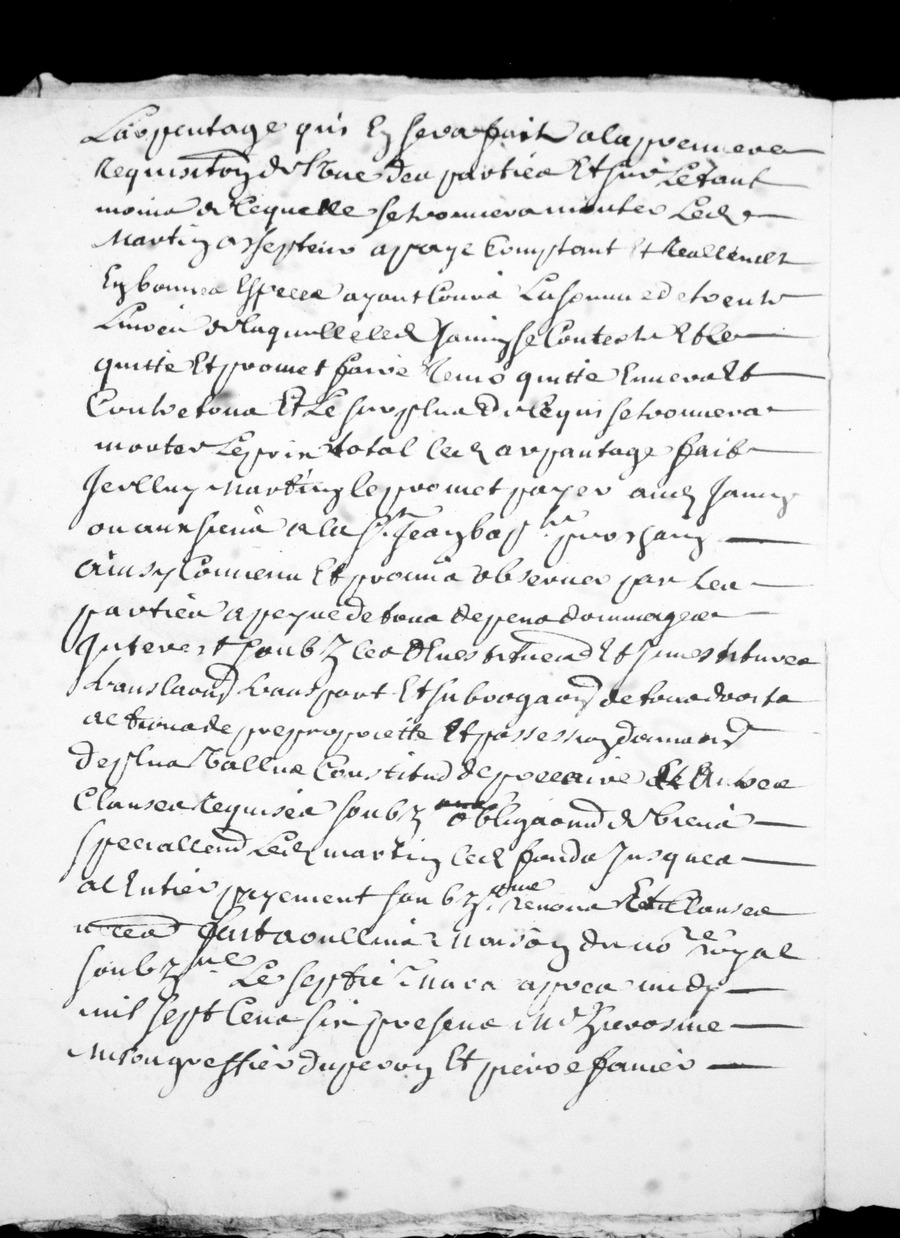 L'arpentage quis En sera fait a la premiere
Requisition de l'une des parties Et sur Le tant
moins de Lequelle se trouvera monter Led
Martin achepteur a paye Comptant Et Reallement
En bonnes Espece ayant Cours La somme de trente
Livres de laquelle led Jamin se Contente Et le
quitte Et promet faire tenir quitte Envers Et
Contre tous Et Le surplus de Lequi se trouvera
monter Le prix total led arpantage fait
Icelluy Martin le promet payer aud Jamin
ou aux siens a la St Jean bapte prochain
Ainsy Convenu Et promis observer par les
parties a peyne de tous depens dommages
Interest soubz les Et Investitures
translaond transport Et subrogaond de tous droits
actions de propriette Et possession donnaond
de plus vallue Constitud de precaire Et Autres
Clauses Requises soubz obligaond de biens
speciallemd Led martin led fonds Jusques
al Entier payement soubz Renons Et Clauses
necesd fait a oullins Maison du nore royal
soubzné Le septie Mars apres midy
mil sept Cens six presens Me Hierosme
greffier duperon Et pierre